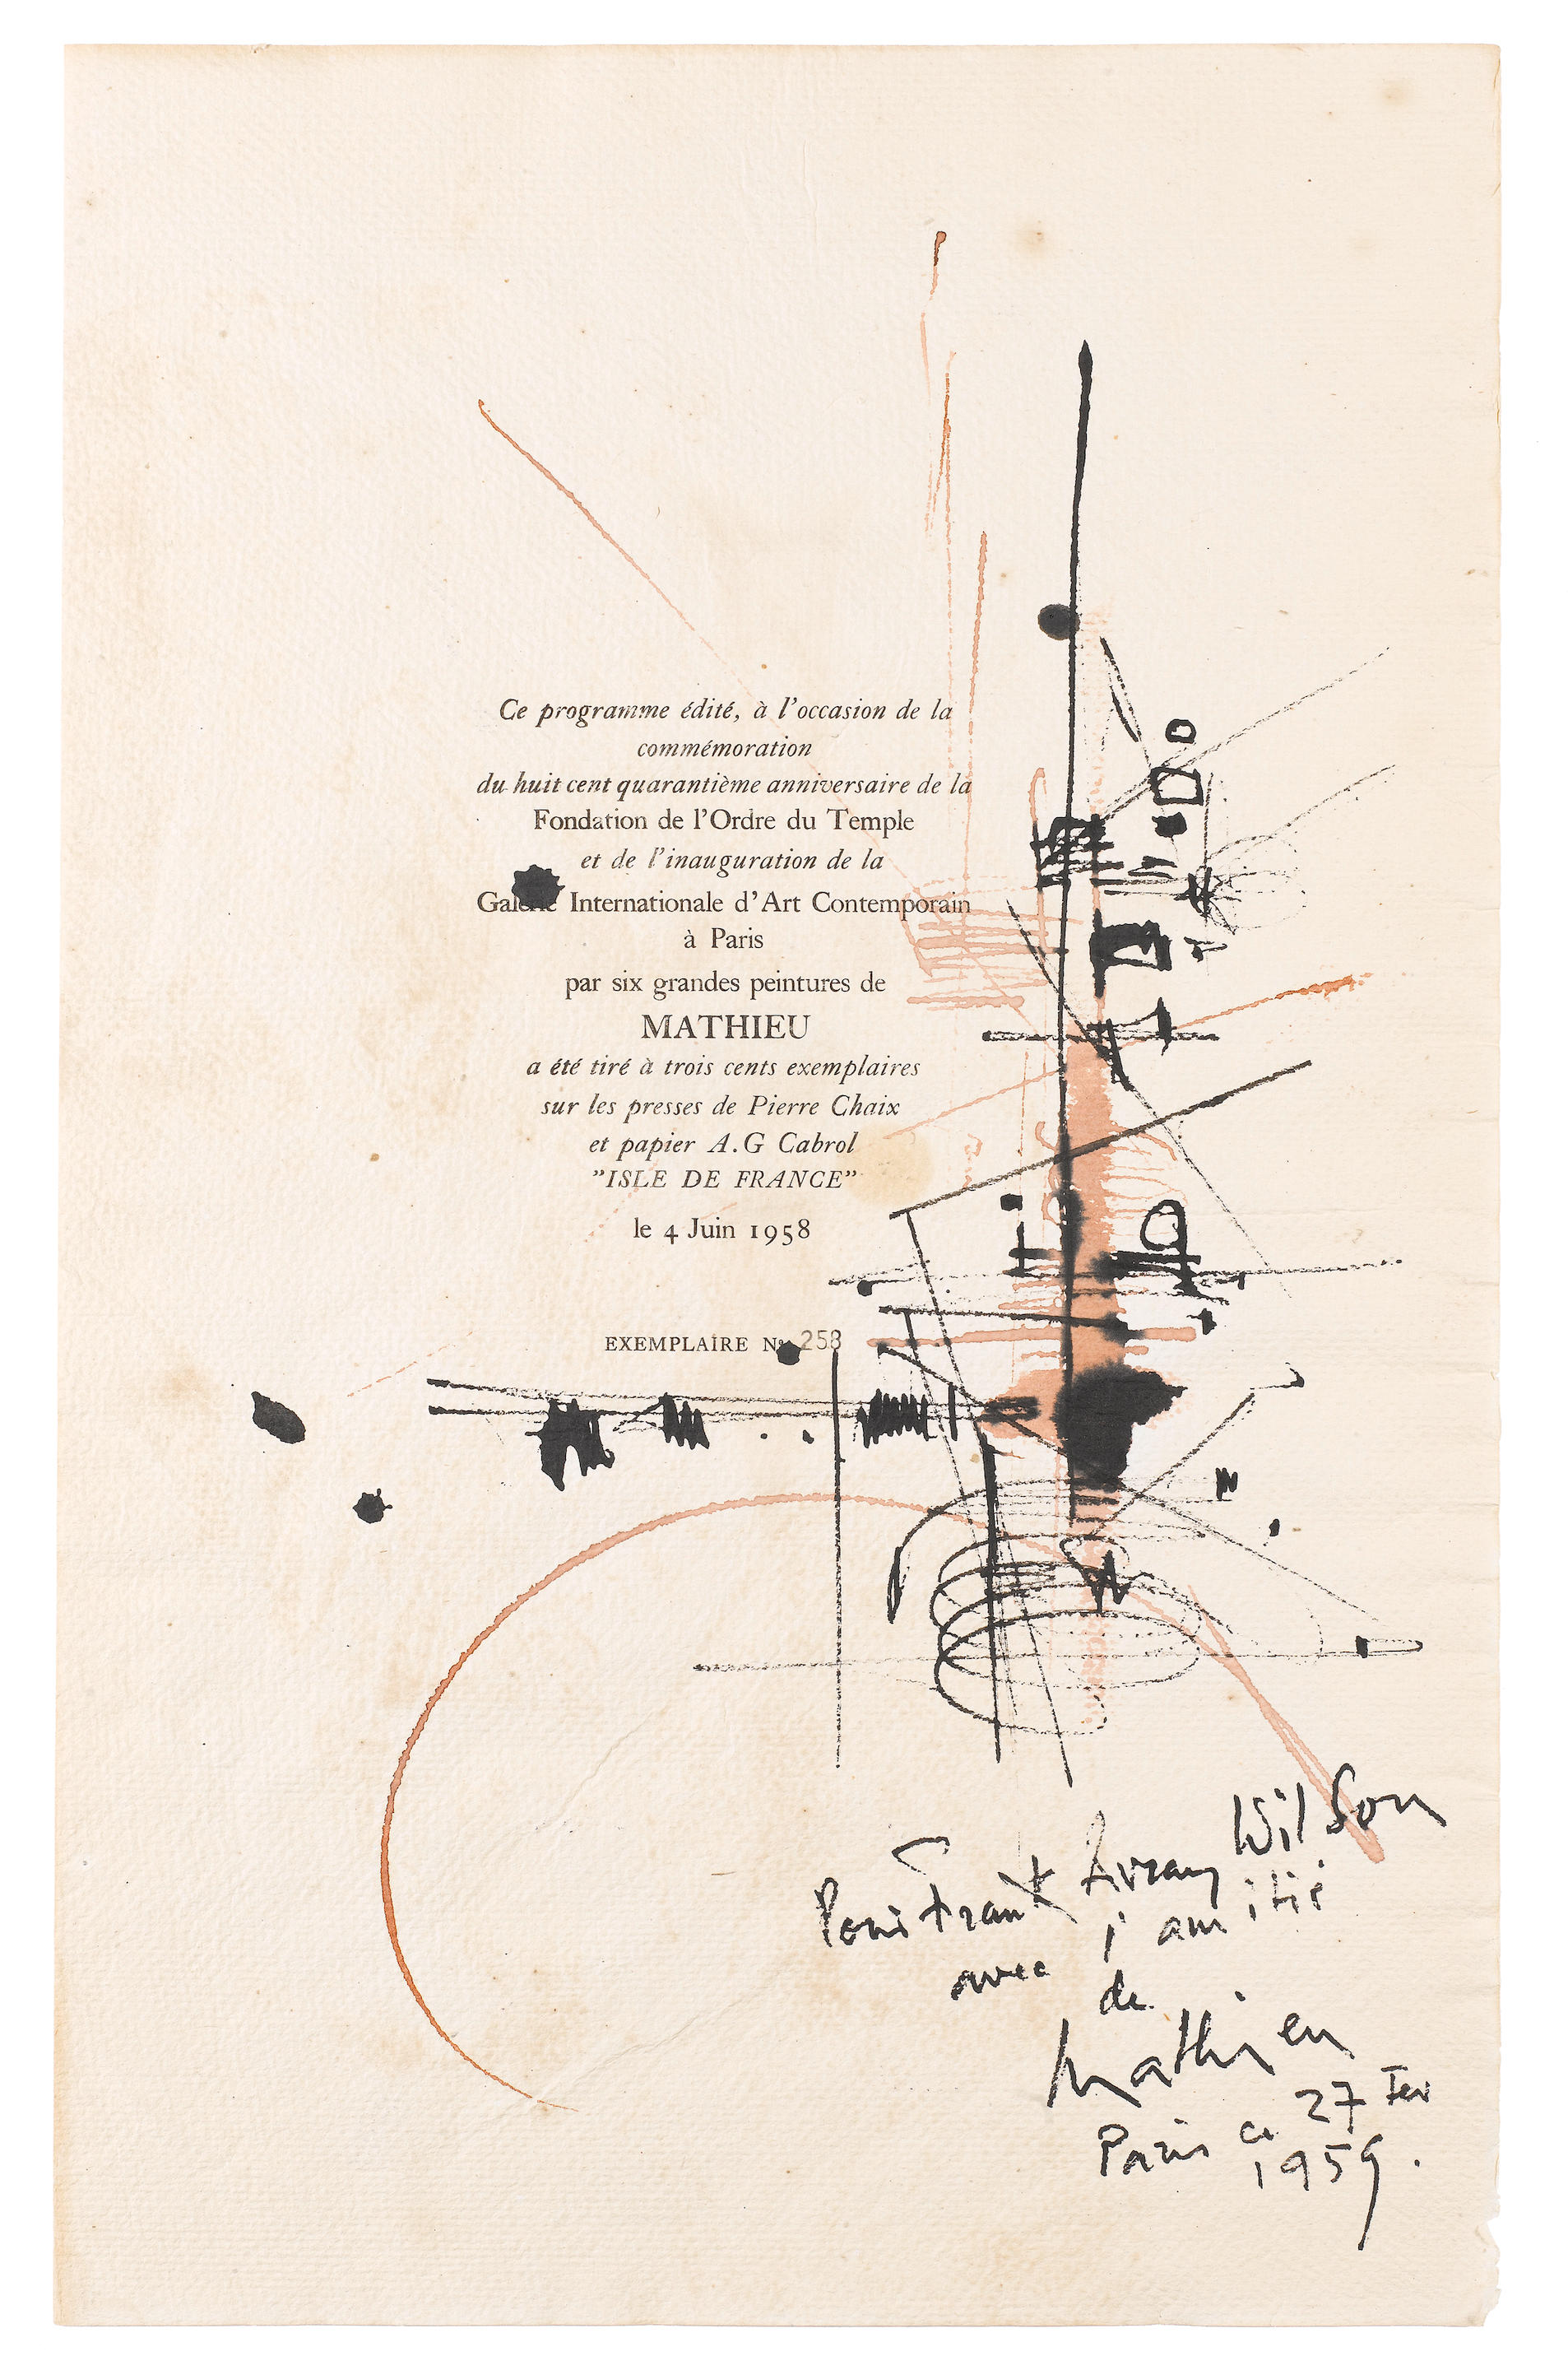 Ce programme édité, à l'occasion de la
commémoration
du huit cent quarantième anniversaire de la
Fondation de l'Ordre du Temple
et de l'inauguration de la
Galerie Internationale d'Art Contemporain
à Paris
par six grandes peintures de
MATHIEU
a été tiré à trois cents exemplaires
sur les presses de Pierre Chaix
et papier A.G Cabrol
"ISLE DE FRANCE"
le 4 Juin 1958
EXEMPLAIRE No 258
Pour Frank Avray Wilson
avec l'amitié
de
Mathieu
Paris ce 27 Fev
1959.